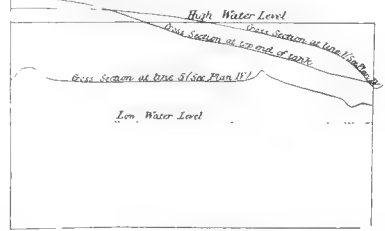 High Water Level
Cross Section at line 1 (See Plan IV)
Cross Section at top end of tank
Cross Section at line 5 (See Plan IV)
Low Water Level